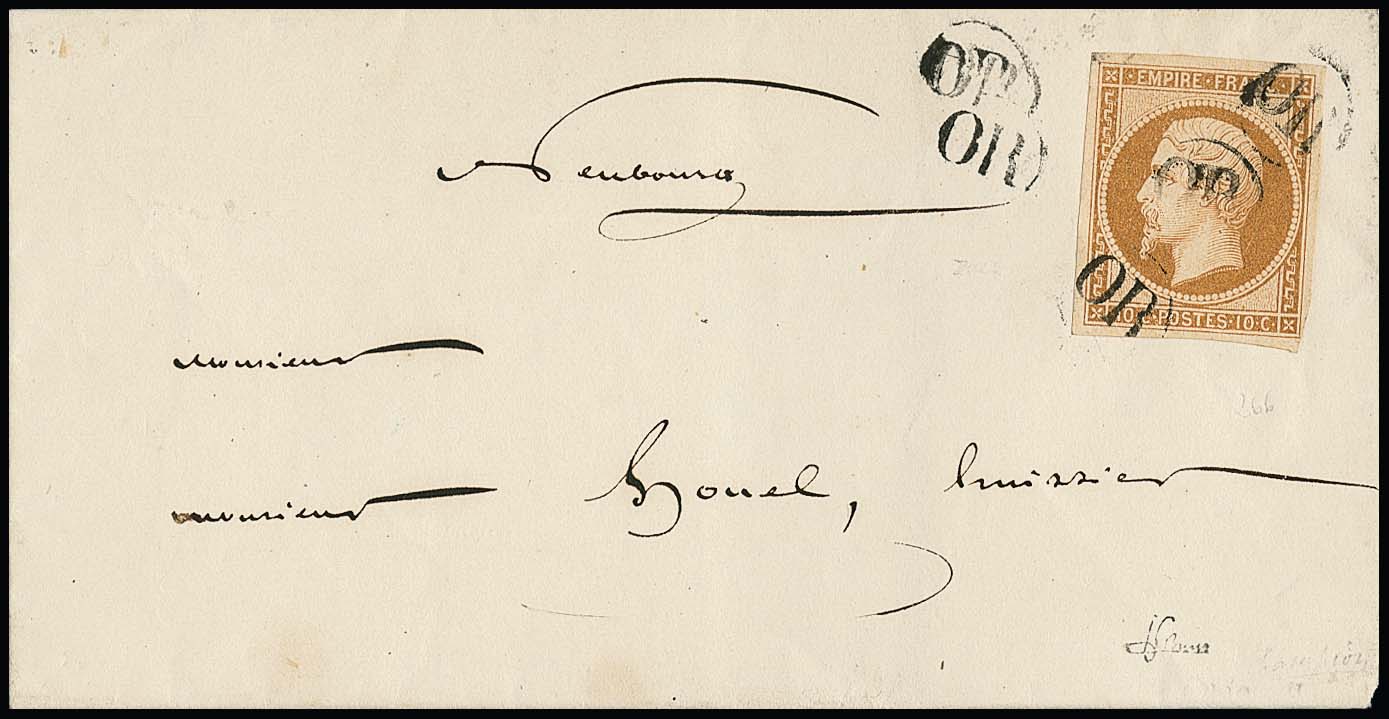 OR
OR
EMPIRE FRANC
OR
OR
OR
10 C POSTES 10 C
Neubourg
monsieur
monsieur houel, huissier
266